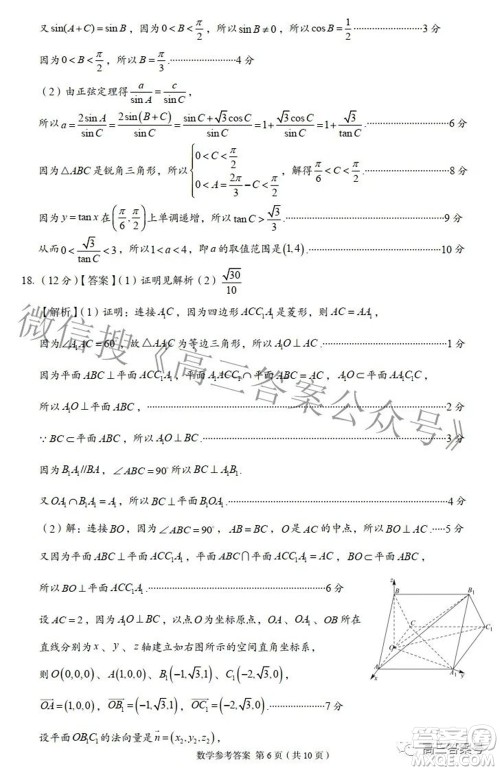 又sin(A+C)=sinB，因为0<B<π/2，所以sinB≠0，所以cosB=1/2 ……3分
因为0<B<π/2，所以B=π/3. ……4分
（2）由正弦定理得a/sinA=c/sinC，
所以a=2sinA/sinC=2sin(B+C)/sinC=(sinC+√3cosC)/sinC=1+√3cosC/sinC=1+√3/tanC ……6分
因为△ABC是锐角三角形，所以{0<C<π/2, 0<A=2π/3−C<π/2，解得π/6<C<π/2 ……8分
因为y=tanx在(π/6,π/2)上单调递增，所以tanC>√3/3 ……9分
从而0<√3/tanC<3，所以1<a<4，即a的取值范围是(1,4) ……10分
18.（12分）【答案】（1）证明见解析（2）√30/10
【解析】（1）证明：连接A₁C，因为四边形ACC₁A₁是菱形，则AC=AA₁，
因为∠A₁AC=60°，故△AA₁C为等边三角形，所以A₁O⊥AC. ……1分
因为平面ABC⊥平面ACC₁A₁，平面ABC∩平面ACC₁A₁=AC，A₁O⊂平面ACC₁A₁，
所以A₁O⊥平面ABC， ……2分
∵BC⊂平面ABC，所以A₁O⊥BC. ……3分
因为B₁A₁//BA，∠ABC=90°所以BC⊥A₁B₁.
又OA₁∩B₁A₁=A₁，所以BC⊥平面B₁OA₁. ……4分
（2）解：连接BO，因为∠ABC=90°，AB=BC，O是AC的中点，所以BO⊥AC. ……5分
又因为平面ABC⊥平面ACC₁A₁，平面ABC∩平面ACC₁A₁=AC，BO⊂平面ABC，
所以BO⊥平面ACC₁A₁. ……6分
设AC=2，因为A₁O⊥AC，以点O为坐标原点，OA、OA₁、OB所在
直线分别为x、y、z轴建立如右图所示的空间直角坐标系，
则O(0,0,0)、A(1,0,0)、B₁(−1,√3,1)、C₁(−2,√3,0)，
OA=(1,0,0)，OB₁=(−1,√3,1)，OC₁=(−2,√3,0). ……7分
设平面OB₁C₁的法向量是n=(x₂,y₂,z₂)，
z
B
B₁
C
C₁
O
A
A₁
x
y
数学参考答案 第6页（共10页）
微信搜《高三答案公众号》
高三答案号